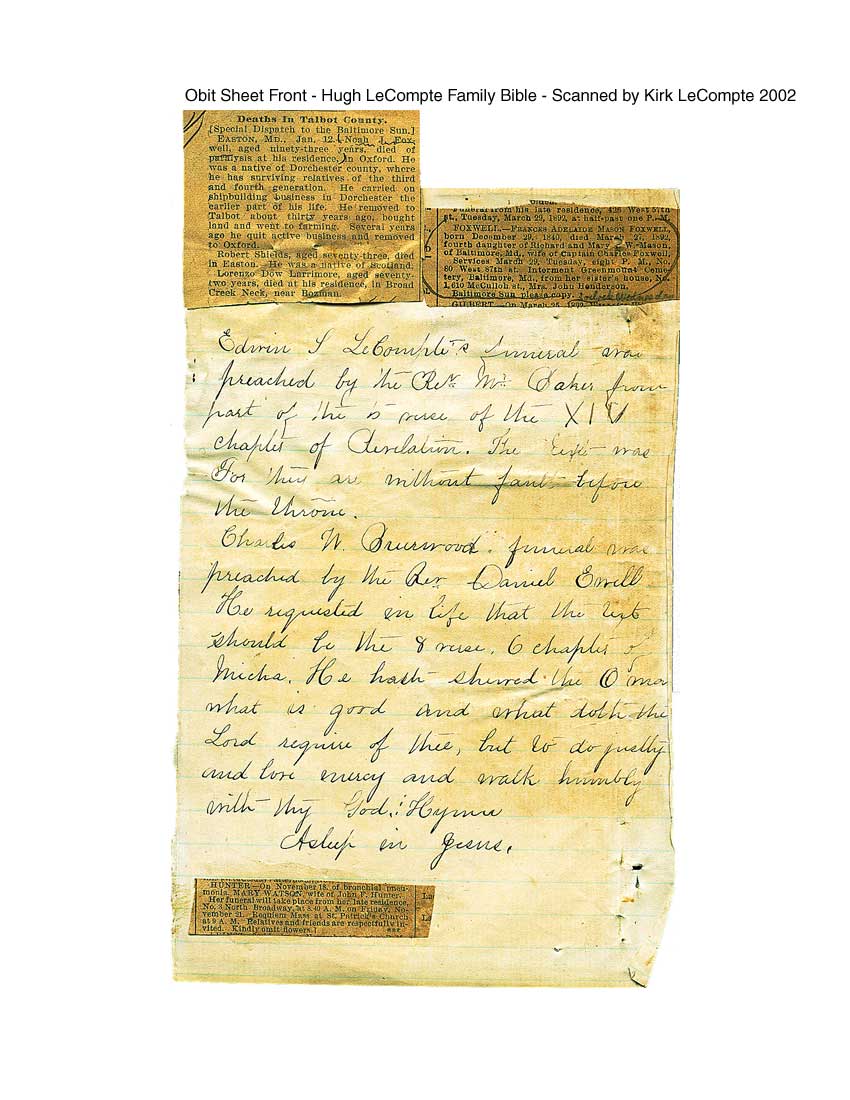 Obit Sheet Front - Hugh LeCompte Family Bible - Scanned by Kirk LeCompte 2002
Deaths In Talbot County.
[Special Dispatch to the Baltimore Sun.]
EASTON, MD., Jan. 12.—Noah J. Fox-
well, aged ninety-three years, died of
paralysis at his residence, in Oxford. He
was a native of Dorchester county, where
he has surviving relatives of the third
and fourth generation. He carried on
shipbuilding business in Dorchester the
earlier part of his life. He removed to
Talbot about thirty years ago, bought
land and went to farming. Several years
ago he quit active business and removed
to Oxford.
Robert Shields, aged seventy-three, died
in Easton. He was a native of Scotland.
Lorenzo Dow Larrimore, aged seventy-
two years, died at his residence, in Broad
Creek Neck, near Bozman.
Funeral from his late residence, 426 West 57th
st., Tuesday, March 29, 1892, at half-past one P. M.
FOXWELL.—FRANCES ADELAIDE MASON FOXWELL,
born December 29, 1840, died March 27, 1892,
fourth daughter of Richard and Mary W. Mason,
of Baltimore, Md., wife of Captain Charles Foxwell.
Services March 29, Tuesday, eight P. M., No.
60 West 87th st. Interment Greenmount Ceme-
tery, Baltimore, Md., from her sister's house, No.
1,610 McCulloh st., Mrs. John Henderson.
Baltimore Sun please copy.
GILBERT.—On March 25, 1892,
Edwin S LeCompte's funeral was
preached by the Rev. Mr. Baker from
part of the 5 verse of the XIV
chapter of Revelation. The text was
For they are without fault before
the throne.
Charles W. Brierwood. funeral was
preached by the Rev Daniel Ewell
He requested in life that the text
should be the 8 verse, 6 chapter of
Micha. He hath shewed the O man
what is good and what doth the
Lord require of thee, but to do justly
and love mercy and walk humbly
with thy God. Hymn
Asleep in Jesus.
HUNTER—On November 18, of bronchial pneu-
monia, MARY WATSON, wife of John F. Hunter.
Her funeral will take place from her late residence,
No. 8 North Broadway, at 8.40 A. M. on Friday, No-
vember 21. Requiem Mass at St. Patrick's Church
at 9 A. M. Relatives and friends are respectfully in-
vited. Kindly omit flowers.]